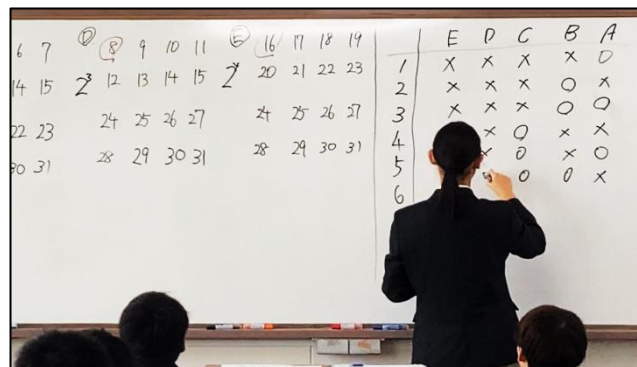 6 7
14 15
22 23
30 31
D
8 9 10 11
2³ 12 13 14 15
24 25 26 27
28 29 30 31
E
16 17 18 19
2⁴ 20 21 22 23
24 25 26 27
28 29 30 31
E D C B A
1 × × × × ○
2 × × × ○ ×
3 × × × ○ ○
4 × ○ × ×
5 × ○ × ○
6 ○ ○ ×